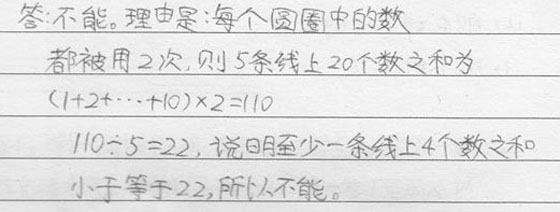 答:不能。理由是:每个圆圈中的数
都被用2次,则5条线上20个数之和为
(1+2+…+10)×2=110
110÷5=22,说明至少一条线上4个数之和
小于等于22,所以不能。